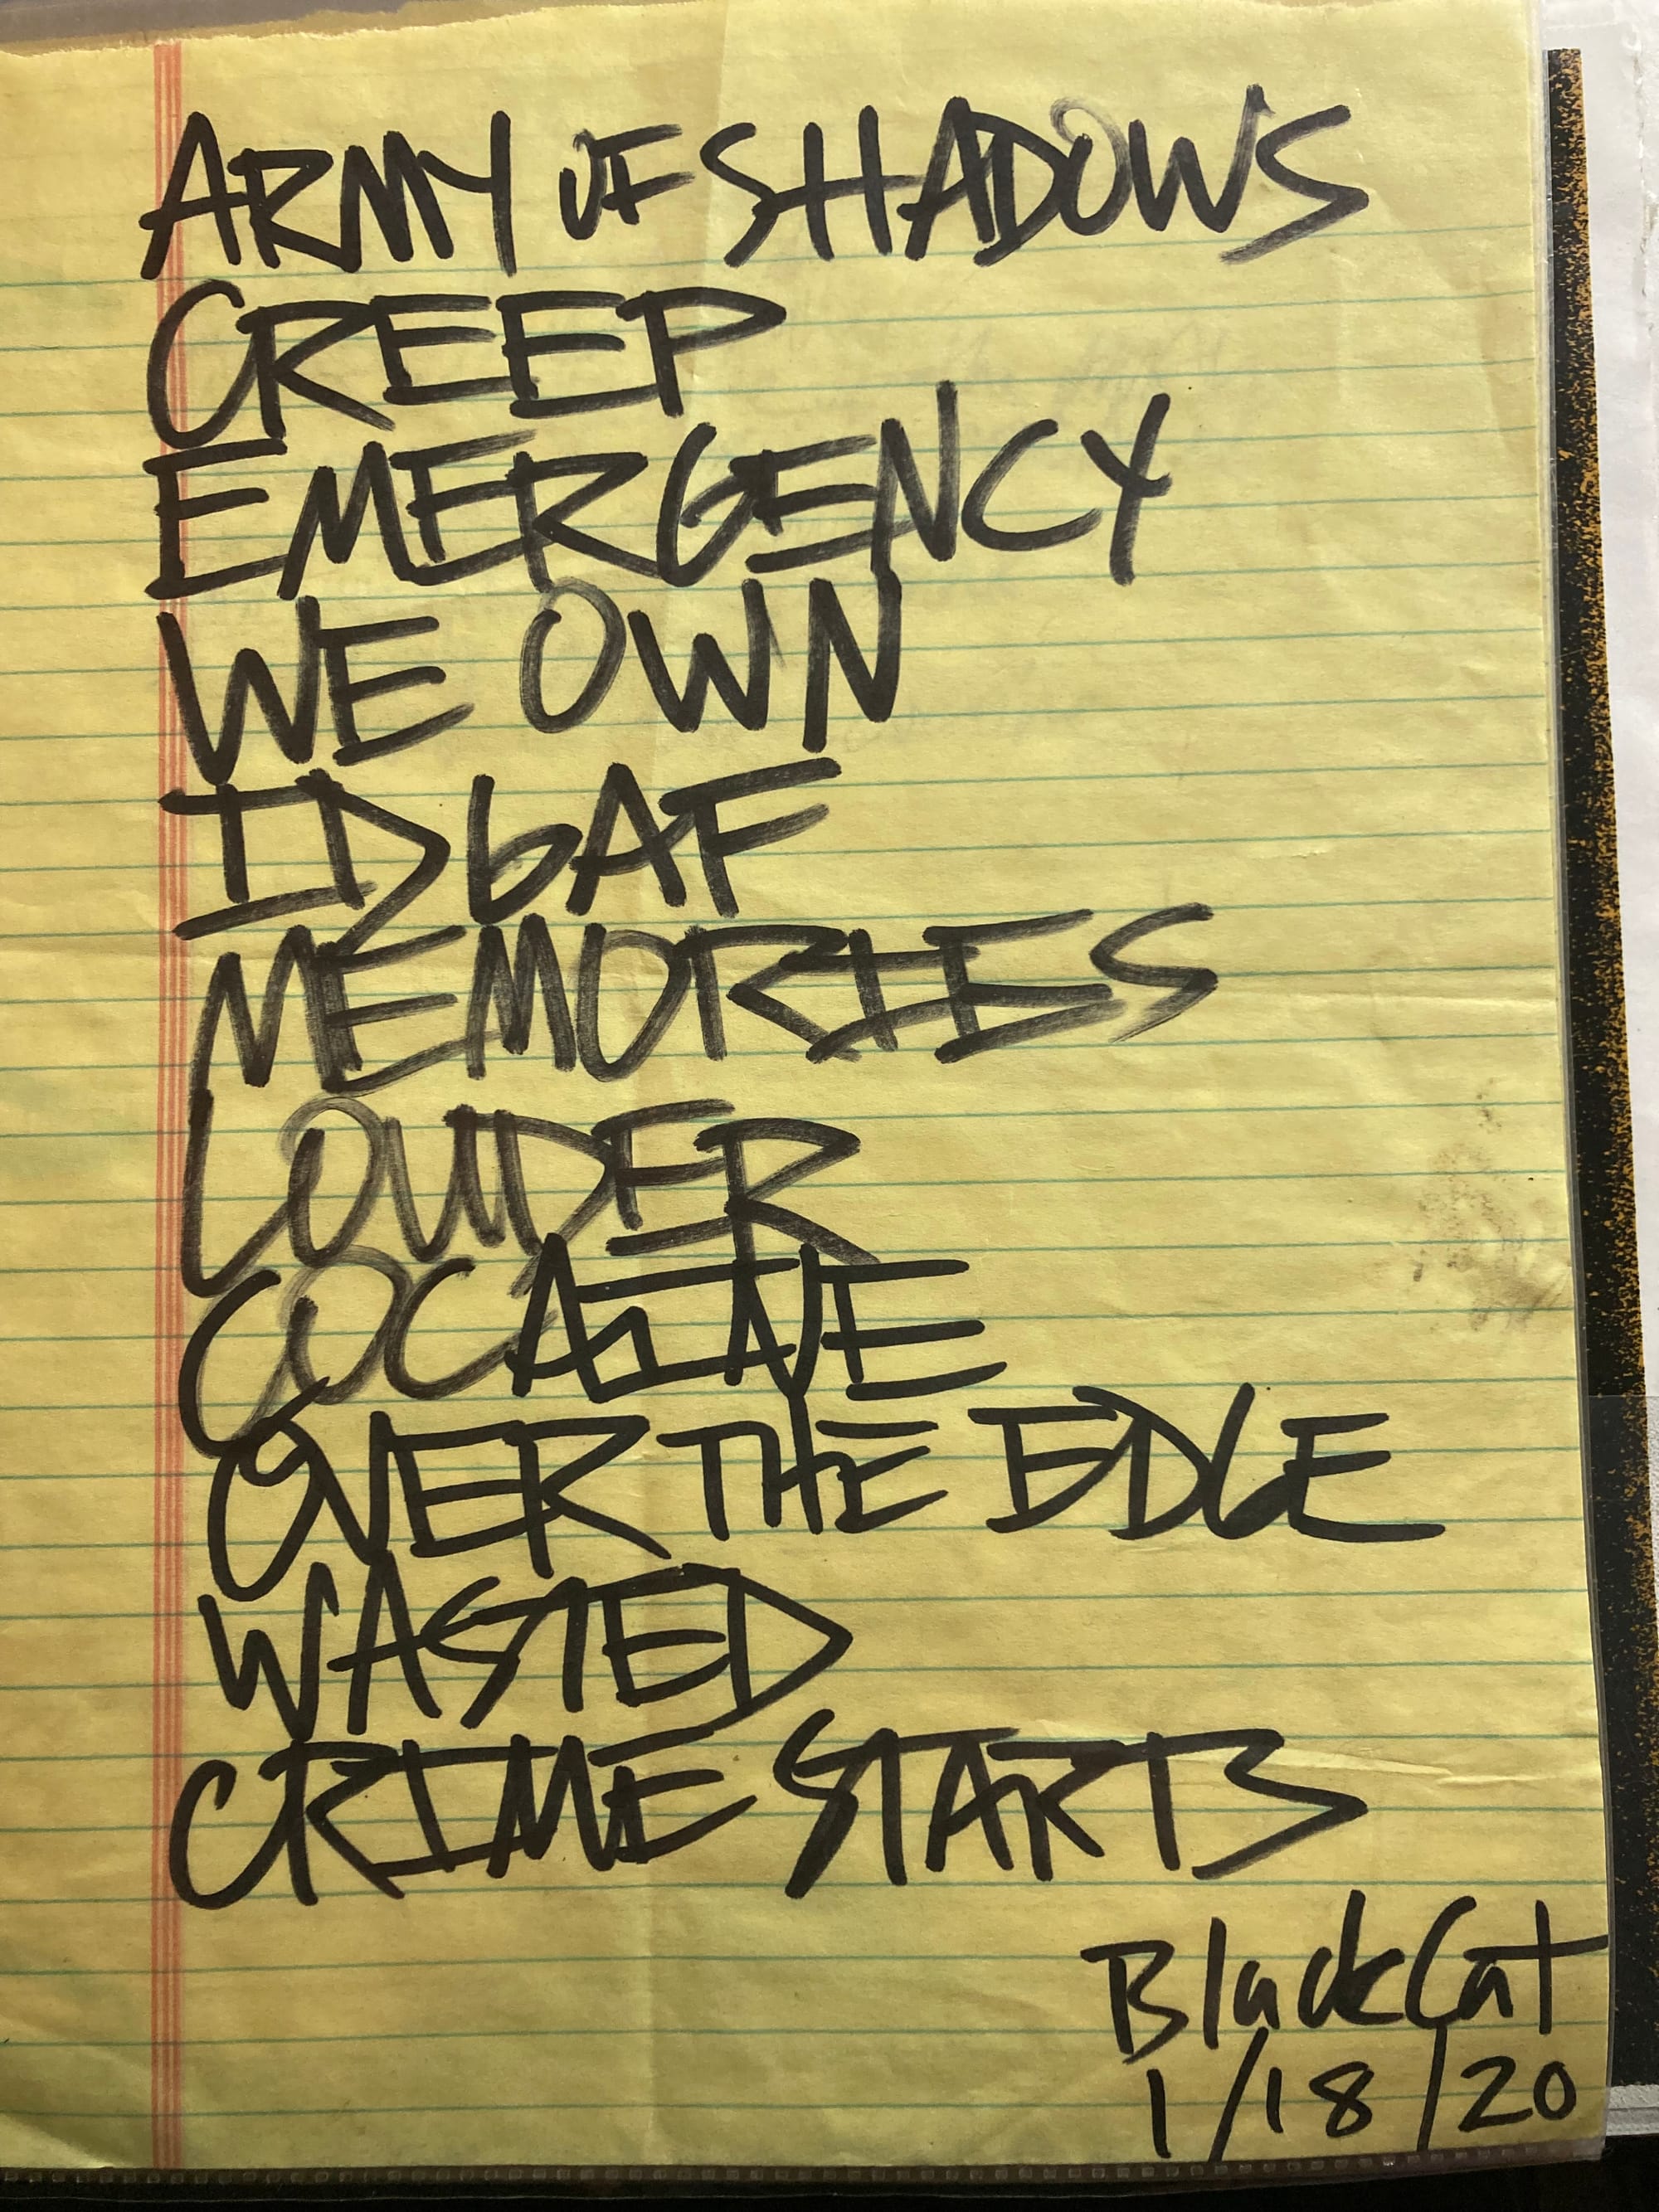 ARMY OF SHADOWS
CREEP
EMERGENCY
WE OWN
IDGAF
MEMORIES
LOUDER
COCAINE
OVER THE EDGE
WASTED
CRIME STARTS
Black Cat
1/18/20